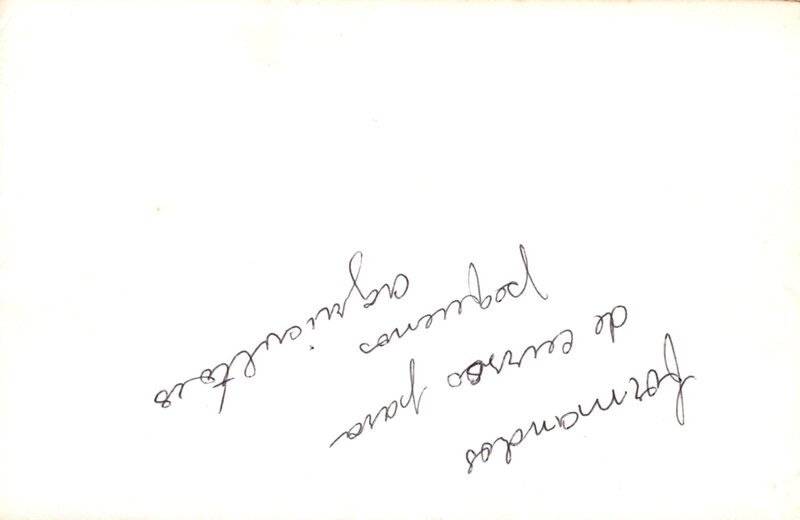 formandos
de curso para
pequenos
agricultores